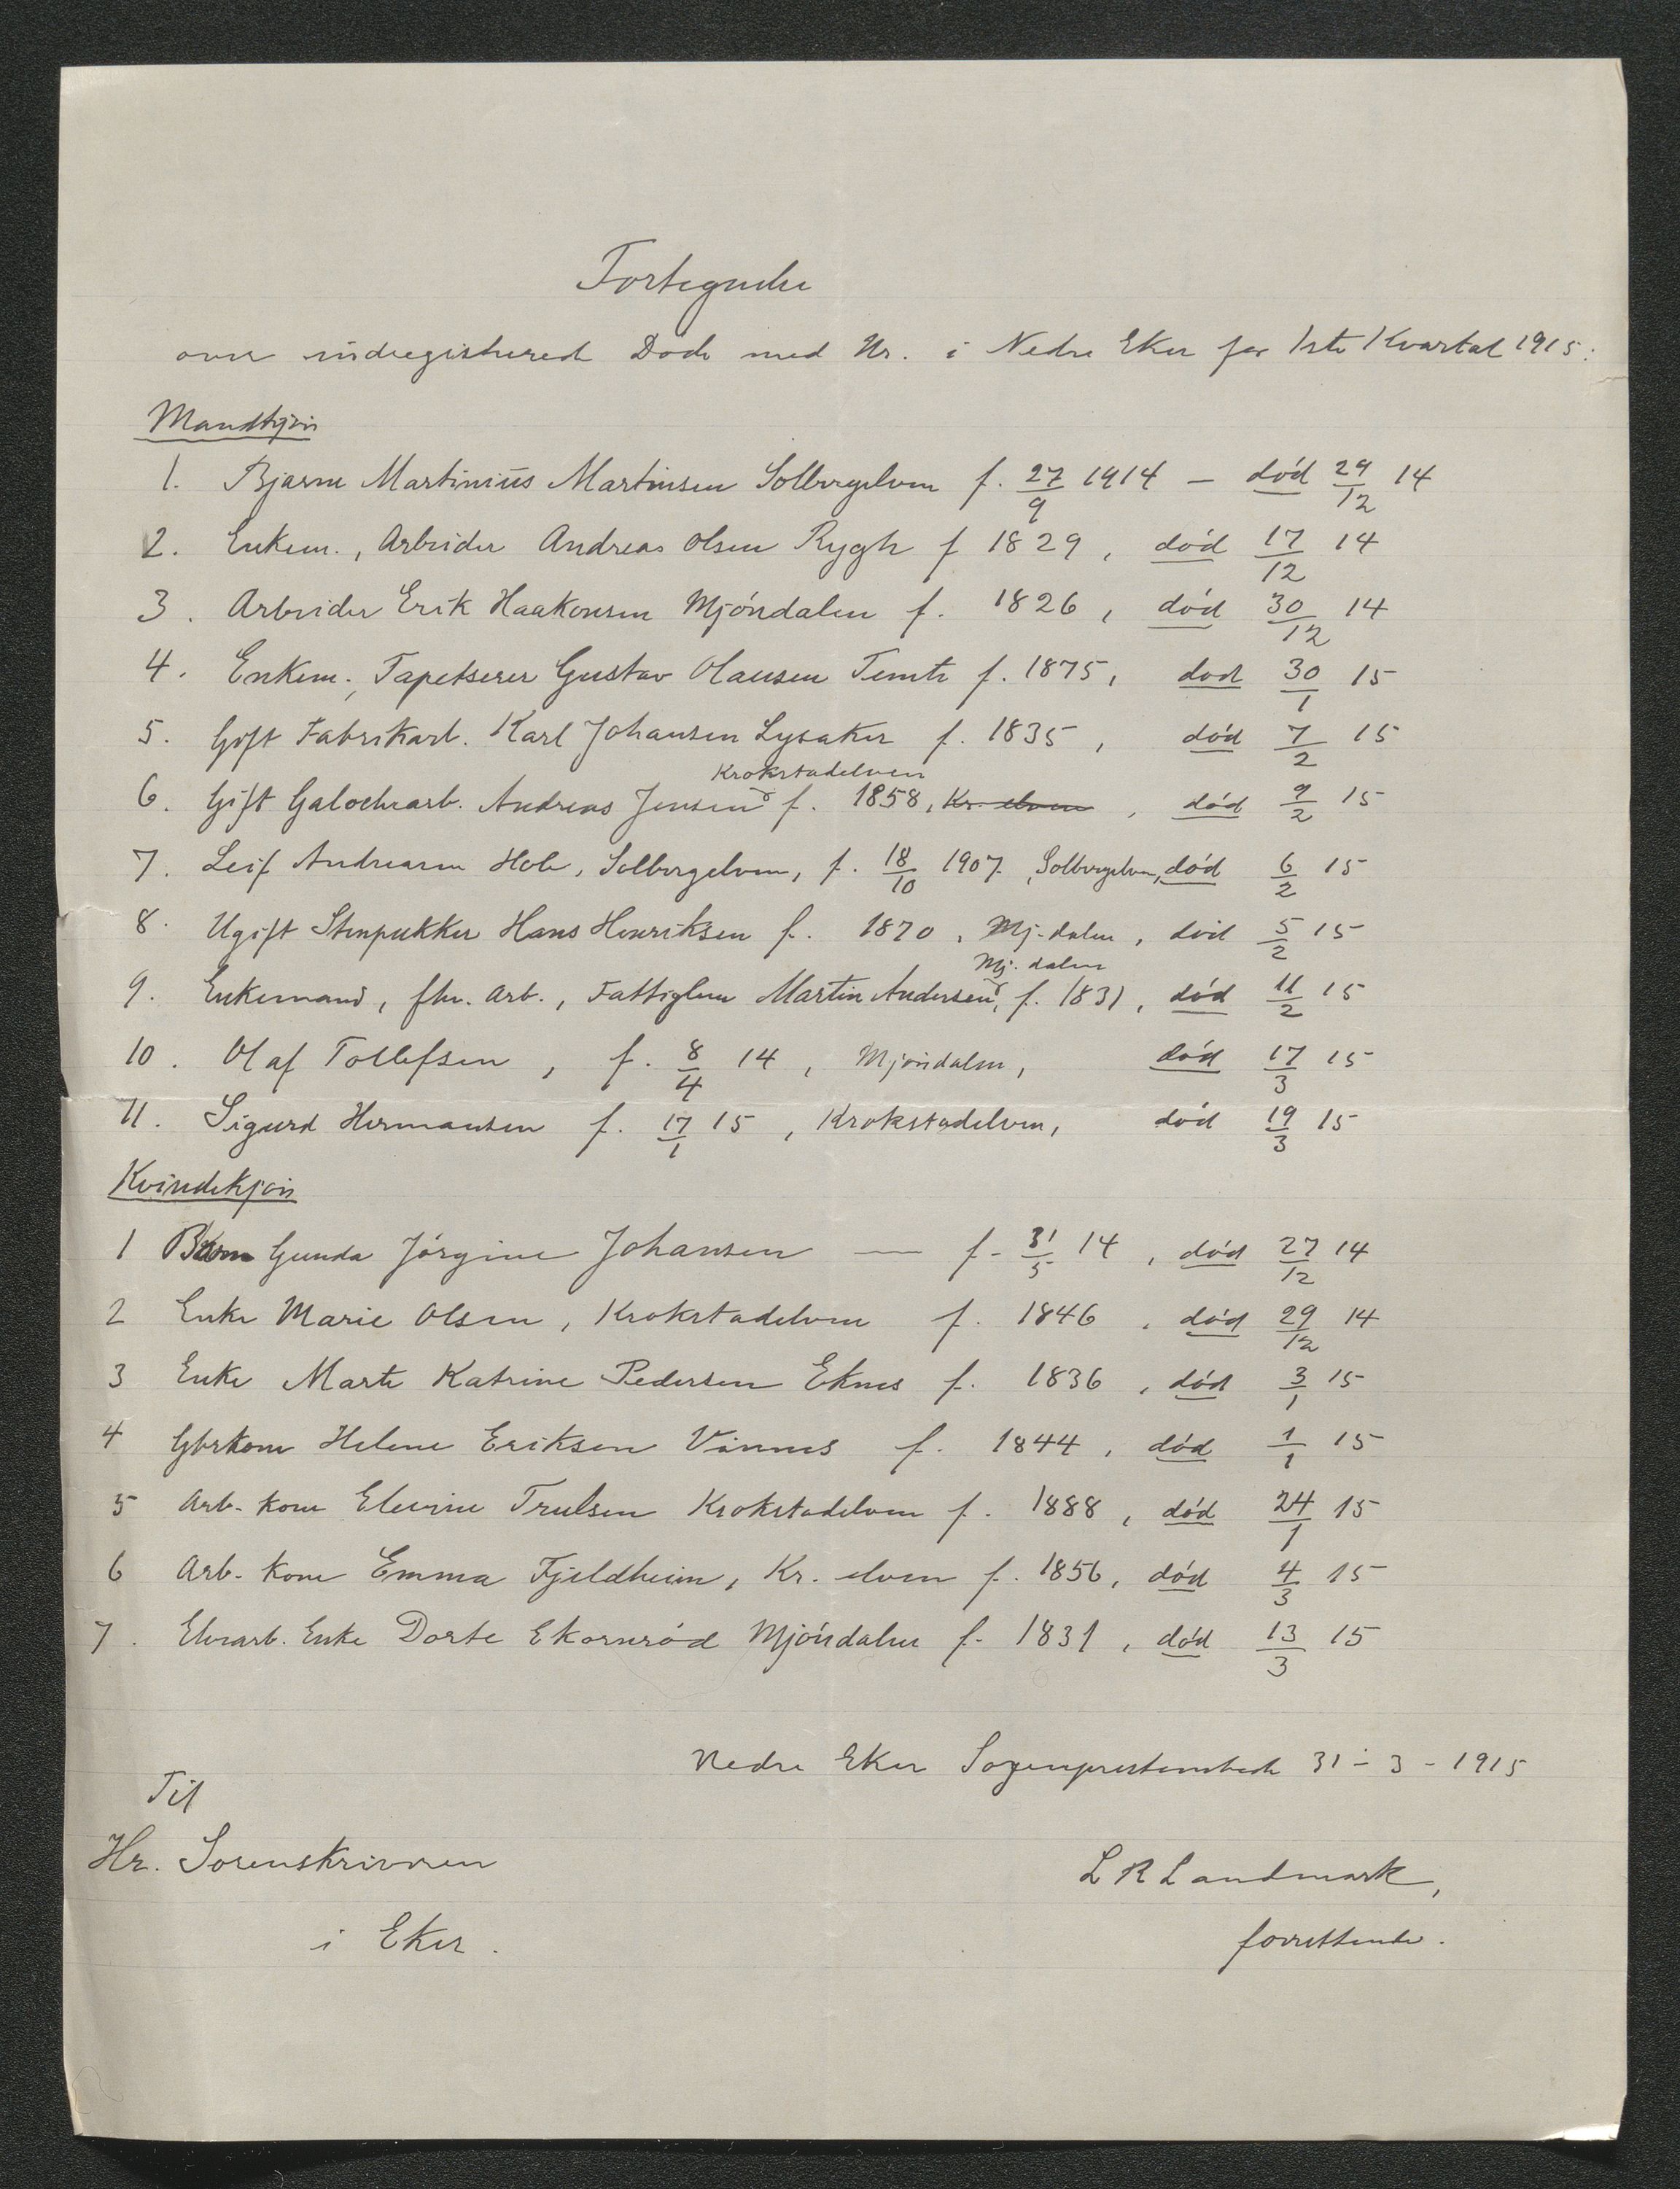 Fortegnelse
over indregistrerede Døde med Nr. i Nedre Eker for 1ste Kvartal 1915.
Mandkjøn
1. Bjarne Martinius Martinsen Solbergelven f. 27/9 1914 — død 29/12 14
2. Enkem., Arbeider Andreas Olsen Rygh f 1829, død 17/12 14
3. Arbeider Erik Haakonsen Mjøndalen f. 1826, død 30/12 14
4. Enkem., Tapetserer Gustav Olausen Temte f. 1875, død 30/1 15
5. Gift Fabrikarb. Karl Johansen Lysaker f. 1835, død 7/2 15
Krokstadelven
6. Gift Galocharb. Andreas Jensen f. 1858, Kr. elven, død 9/2 15
7. Leif Andreasen Hole, Solbergelven, f. 18/10 1907, Solbergelven, død 6/2 15
8. Ugift Stenpukker Hans Henriksen f. 1870, Mj-dalen, død 5/2 15
Mj. dalen
9. Enkemand, fhv. Arb., Fattiglem Martin Andersen, f. 1831, død 11/2 15
10. Olaf Tollefsen, f. 8/4 14, Mjøndalen, død 17/3 15
11. Sigurd Hermansen f. 17/1 15, Krokstadelven, død 19/3 15
Kvindekjøn
1 Barn Gunda Jørgine Johansen — f. 31/5 14, død 27/12 14
2 Enke Marie Olsen, Krokstadelven f. 1846, død 29/12 14
3 Enke Marte Katrine Pedersen Eknes f. 1836, død 3/1 15
4 Gbrkone Helene Eriksen Vinnes f. 1844, død 1/1 15
5 Arb. kone Elevine Trulsen Krokstadelven f. 1888, død 24/1 15
6 Arb. kone Emma Fjeldheim, Kr. elven f. 1856, død 4/3 15
7. Elvearb. Enke Dorte Ekornrød Mjøndalen f. 1831, død 13/3 15
Nedre Eker Sogneprestembede 31-3-1915
Til
Hr. Sorenskriveren
i Eker.
L R Landmark,
forrettende.